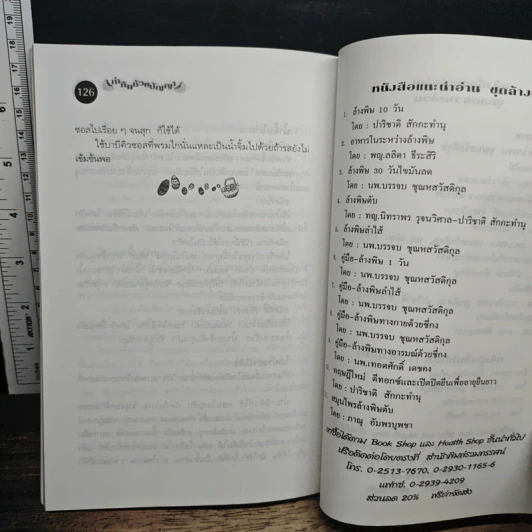 126
ซอสไปเรื่อย ๆ จนสุก ก็ใช้ได้
ใช้บาบีคิวซอสที่พรมไก่นั่นแหละเป็นน้ำจิ้มไปด้วยถ้ารสยังไม่
เข้มข้นพอ
หนังสือแนะนำอ่าน ชุดล้าง
1. ล้างพิษ 10 วัน
โดย : ปาริชาติ สักกะทำนุ
2. อาหารในระหว่างล้างพิษ
โดย : พญ.ลลิตา ธีระสิริ
3. ล้างพิษ 30 วันไขมันลด
โดย : นพ.บรรจบ ชุณหสวัสดิกุล
4. ล้างพิษตับ
โดย : ทญ.นิทราพร รุจนวิศาล-ปาริชาติ สักกะทำนุ
5. ล้างพิษลำไส้
โดย : นพ.บรรจบ ชุณหสวัสดิกุล
6. คู่มือ-ล้างพิษ 1 วัน
โดย : นพ.บรรจบ ชุณหสวัสดิกุล
7. คู่มือ-ล้างพิษลำไส้
โดย : นพ.บรรจบ ชุณหสวัสดิกุล
8. คู่มือ-ล้างพิษทางกายด้วยชี่กง
โดย : นพ.บรรจบ ชุณหสวัสดิกุล
9. คู่มือ-ล้างพิษทางอารมณ์ด้วยชี่กง
โดย : นพ.เทอดศักดิ์ เดชคง
10. ทฤษฎีใหม่ ดีทอกซ์และเปิดปิดยีนเพื่ออายุยืนยาว
โดย : ปาริชาติ สักกะทำนุ
สมุนไพรล้างพิษตับ
โดย : ภาณุ อัมพรบุพชา
หาซื้อได้ตาม Book Shop และ Health Shop ชั้นนำทั่วไป
หรือติดต่อโดยตรงที่ สำนักพิมพ์รวมทรรศน์
โทร. 0-2513-7670, 0-2930-1165-6
แฟกซ์. 0-2939-4209
ส่วนลด 20% ฟรีค่าจัดส่ง